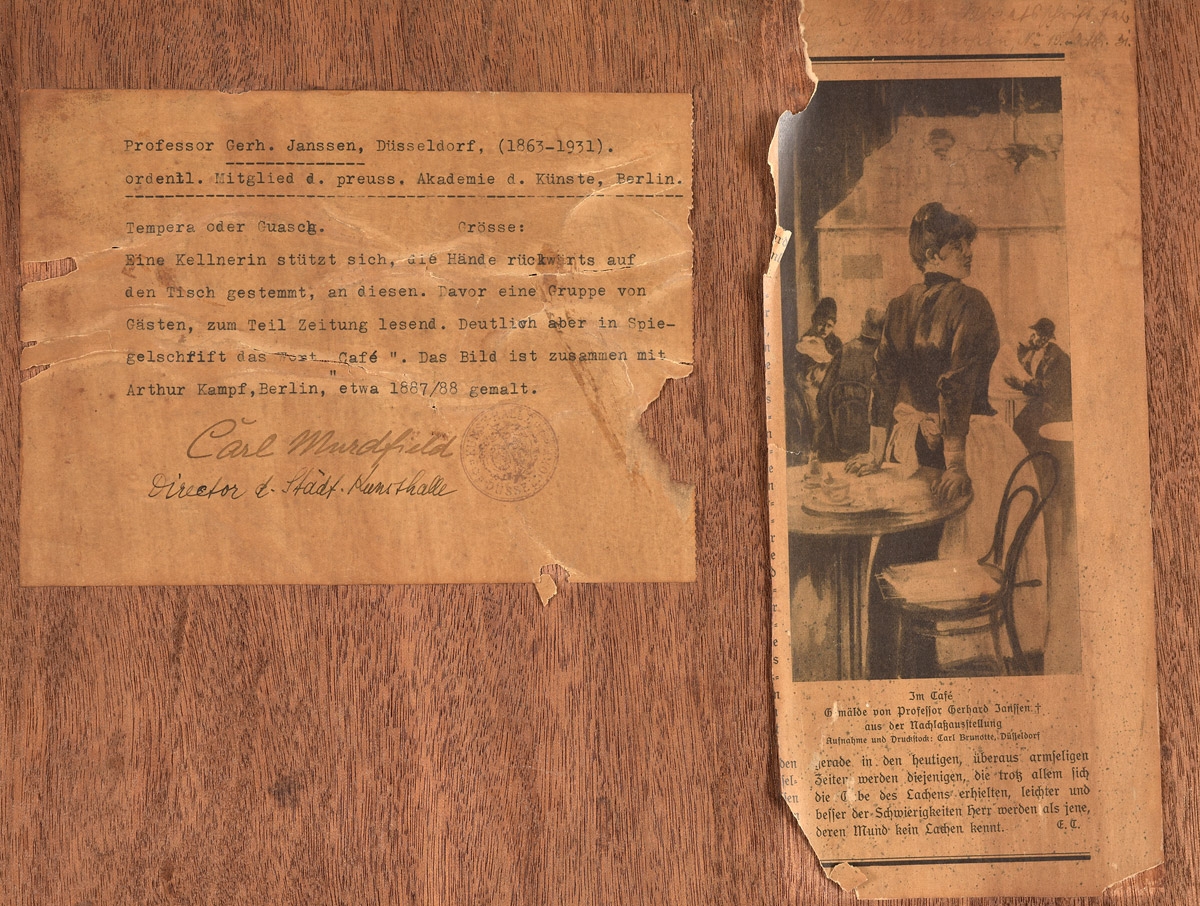 Professor Gerh. Janssen, Düsseldorf, (1863-1931).
ordentl. Mitglied d. preuss. Akademie d. Künste, Berlin.
Tempera oder Guasch. Grösse:
Eine Kellnerin stützt sich, die Hände rückwärts auf
den Tisch gestemmt, an diesen. Davor eine Gruppe von
Gästen, zum Teil Zeitung lesend. Deutlich aber in Spie-
gelschfift das Wort " Café ". Das Bild ist zusammen mit
Arthur Kampf,Berlin, etwa 1887/88 gemalt.
Carl Murdfield
Director d. Städt. Kunsthalle
Im Café
Gemälde von Professor Gerhard Janssen †
aus der Nachlaßausstellung
Aufnahme und Druckstock: Carl Brunotte, Düsseldorf
gerade in den heutigen, überaus armseligen
Zeiten werden diejenigen, die trotz allem sich
die Gabe des Lachens erhielten, leichter und
besser der Schwierigkeiten Herr werden als jene,
deren Mund kein Lachen kennt. E. C.